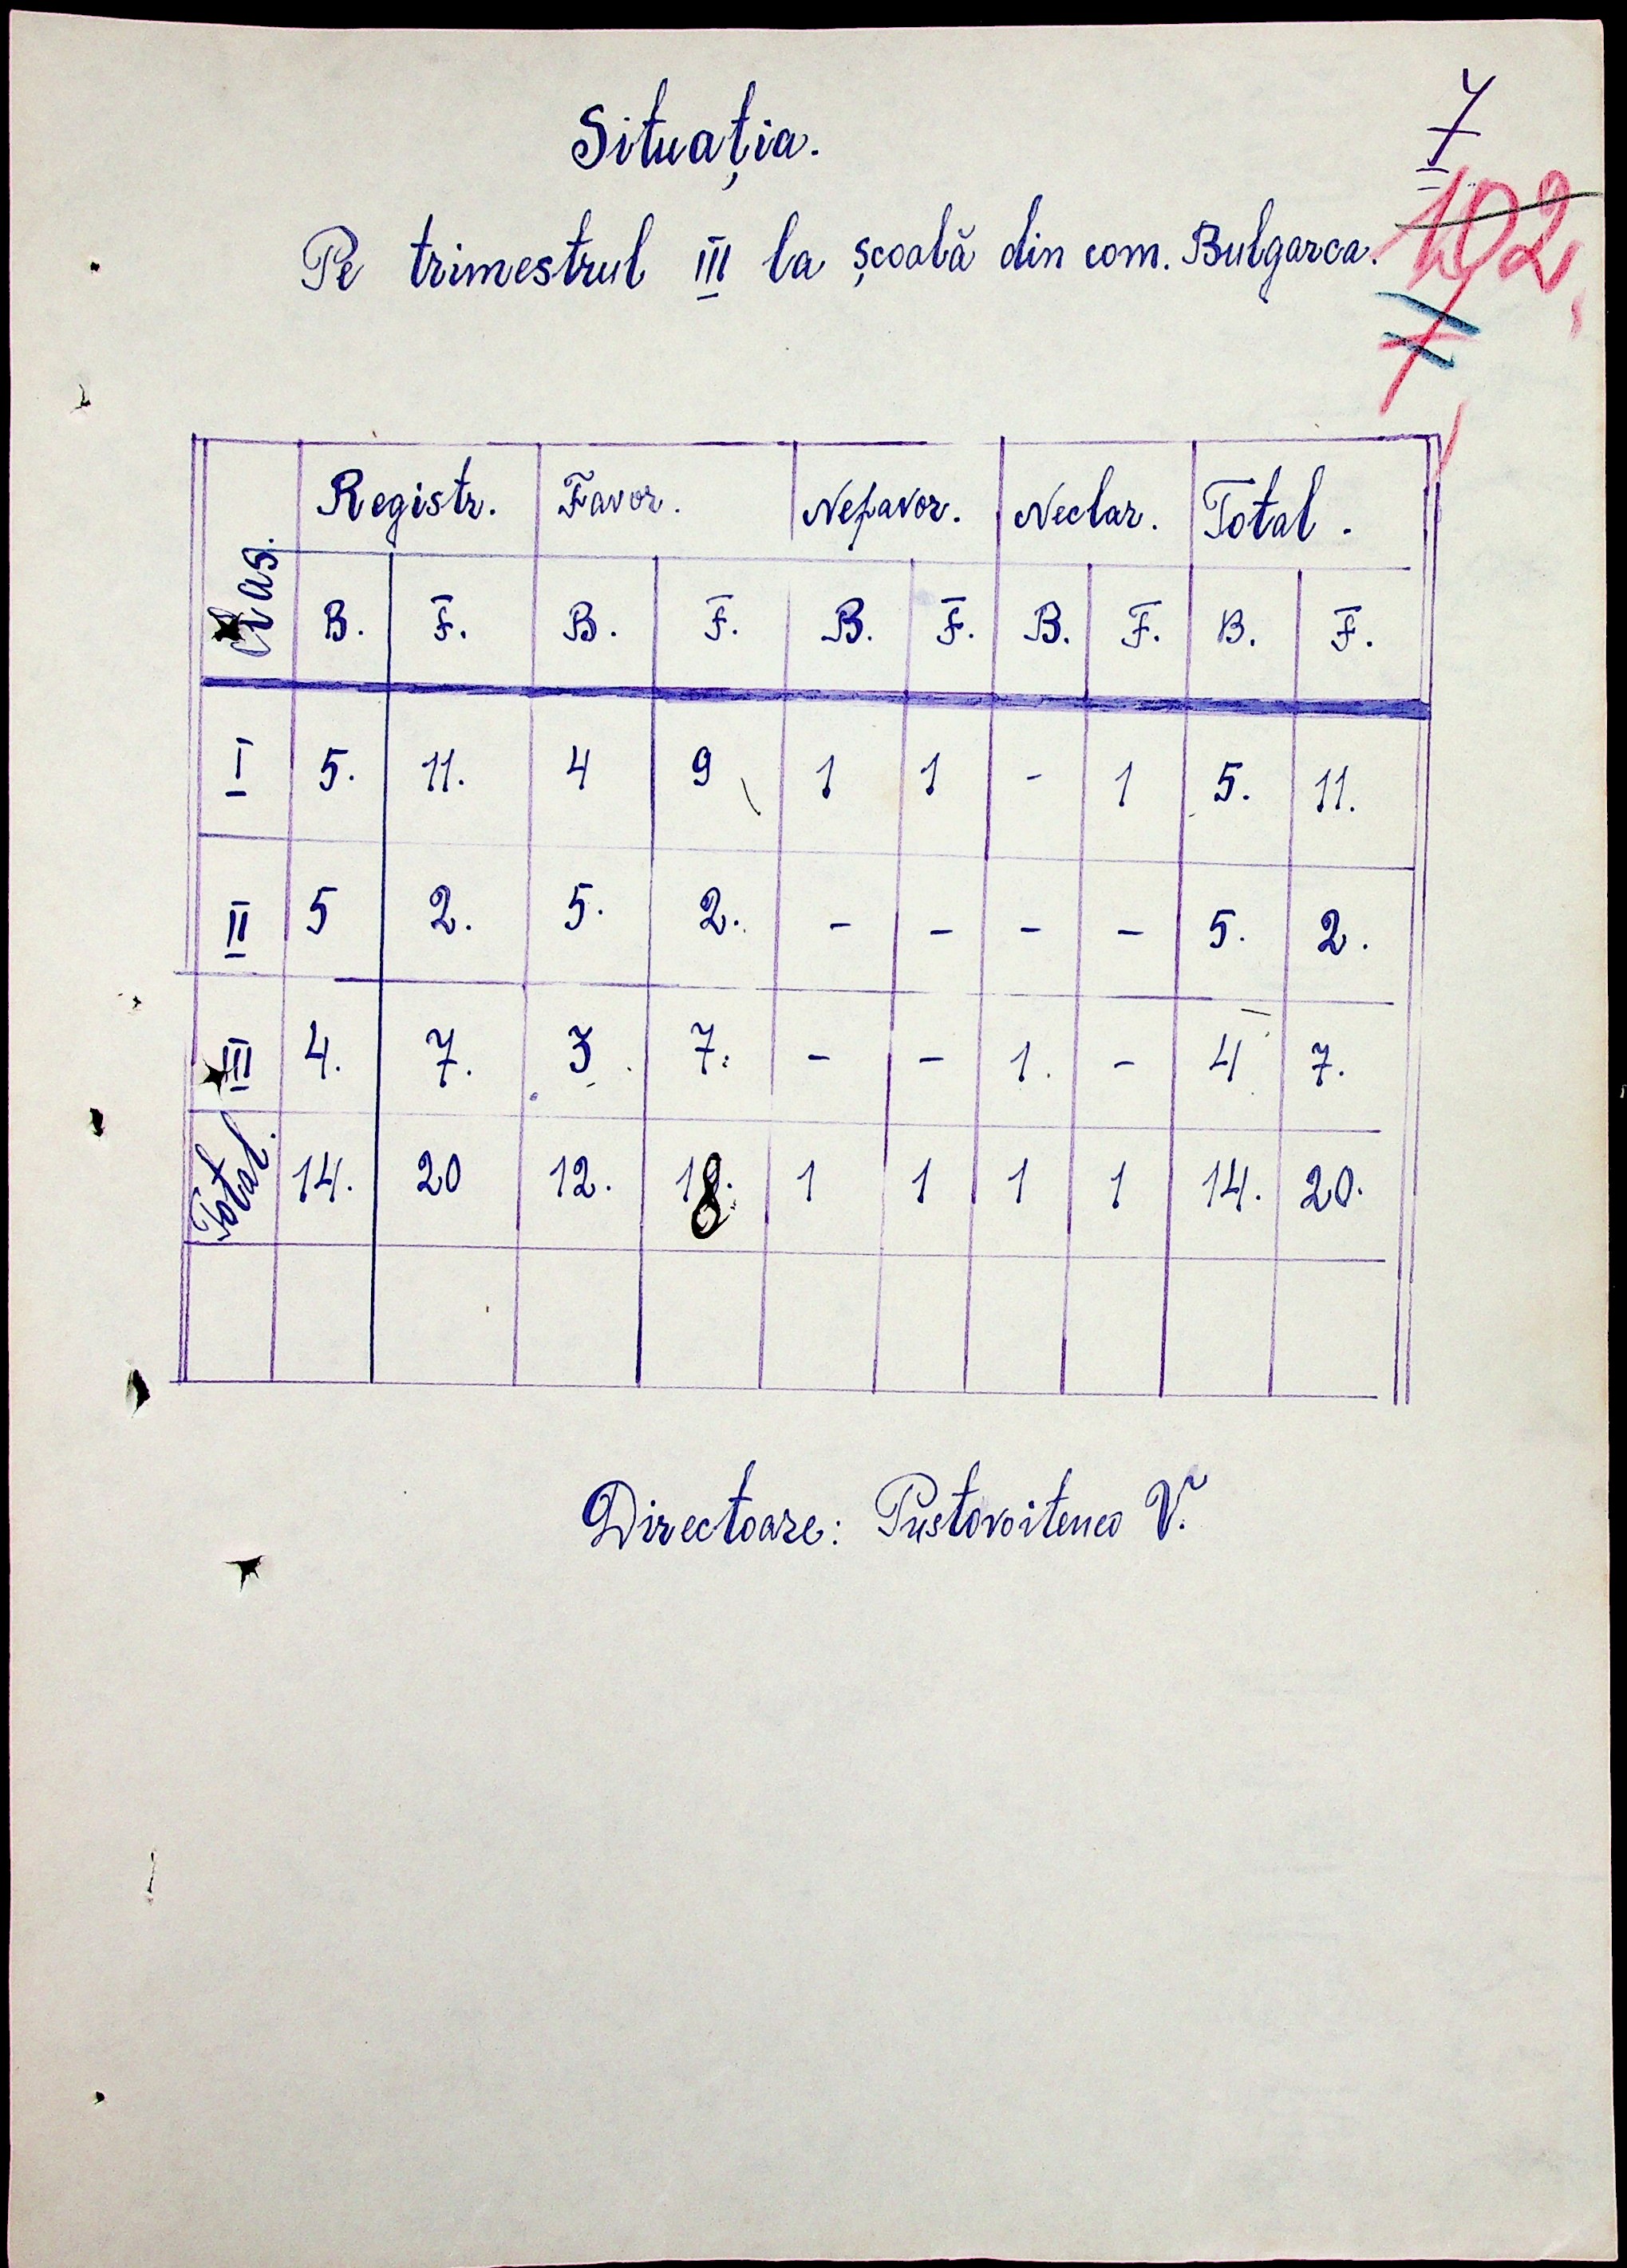 Situația.
7
Pe trimestrul III la școală din com. Bulgarca.
102
7
Clas. Registr. Favor. Nefavor. Neclar. Total.
B. F. B. F. B. F. B. F. B. F.
I 5. 11. 4 9 1 1 - 1 5. 11.
II 5 2. 5. 2. - - - - 5. 2.
III 4. 7. 3 7. - - 1. - 4 7.
Total. 14. 20 12. 18. 1 1 1 1 14. 20.
Directoare: Pustovoitenco V.